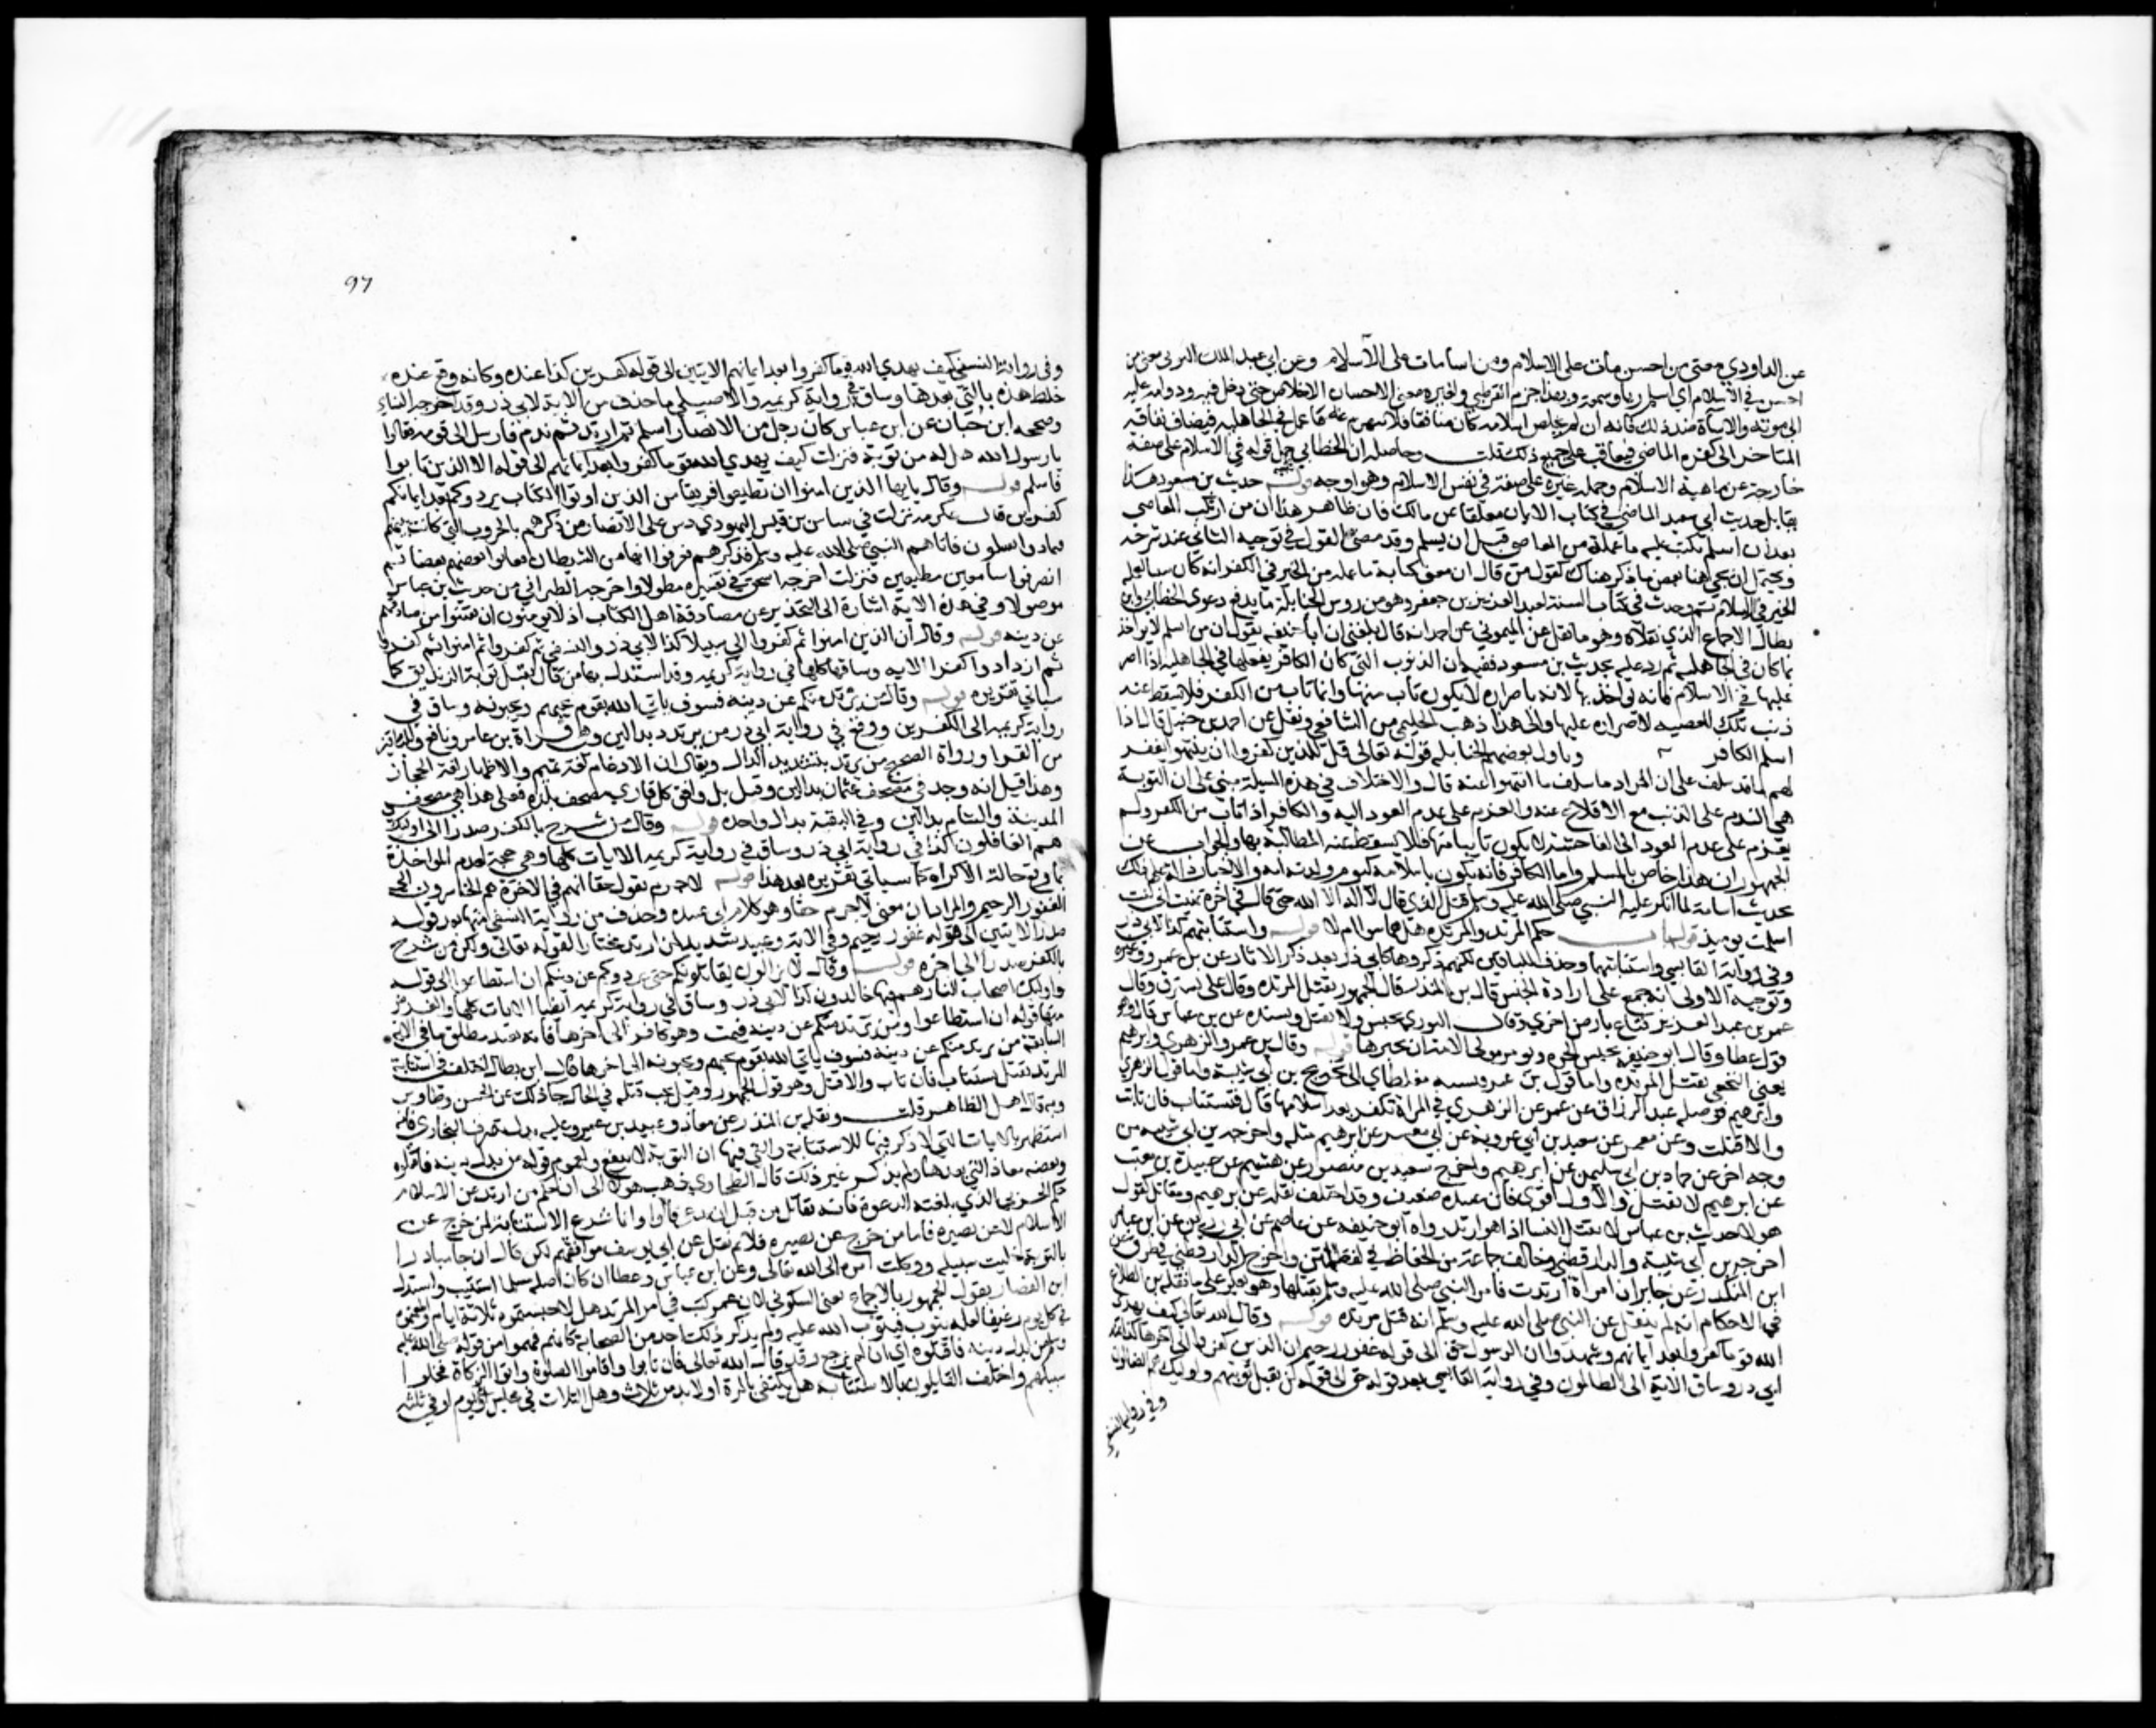 عن الداودي معنى من احسن مات على الاسلام ومن اسا مات على الاسلام وعن ابي عبد الملك البوني معنى من
احسن في الاسلام اي اسلم وبهذا جزم القرطبي ولغيره معنى الاحسان الاخلاص حين دخل فيه ودوامه عليه
الى موته والاساة ضد ذلك فانه ان لم يخلص اسلامه كان منافقا فلا ينهدم عنه ما عمل في الجاهلية فيضاف نفاقه
المتاخر الى كفره الماضي فيعاقب على جميع ذلك قلت وحاصله ان الخطابي حمل قوله في الاسلام على صفة
خارجة عن ماهية الاسلام وحمله غيره على صفة في نفس الاسلام وهو اوجه قوله حديث بن مسعود هذا
يقابل حديث ابي سعيد الماضي في كتاب الايمان معلقا عن مالك فان ظاهر هذا ان من ارتكب المعاصي
بعد ان اسلم يكتب عليه ما عمله من المعاصي قبل ان يسلم وقد مضى القول في توجيه الثاني عند شرحه
ويحتمل ان يجي هنا بعض ما ذكر هناك كقول من قال ان معنى كتابة ما عمله من الخير في الكفر انه كان سببا لعمله
الخير في الاسلام ثم وجدت في كتاب السنة لعبد العزيز بن جعفر وهو من روس الحنابلة ما يدفع دعوى الخطابي وابن
بطال الاجماع الذي نقلاه وهو ما نقل عن الميموني عن احمد انه قال بلغني ان ابا حنيفة يقول ان من اسلم لا يواخذ
بما كان في الجاهلية ثم رد عليه بحديث بن مسعود ففيه ان الذنوب التي كان الكافر يفعلها في الجاهلية اذا اصر
عليها في الاسلام فانه يواخذ بها لانه باصراره لا يكون تاب منها وانما تاب من الكفر فلا يسقط عنه
ذنب تلك المعصية لاصراره عليها والى هذا ذهب الحليمي من الشافعي ونقل عن احمد بن حنبل قال اذا
اسلم الكافر وتاول بعض الحنابلة قوله تعالى قل للذين كفروا ان ينتهوا يغفر
لهم ما قد سلف على ان المراد ما سلف مما انتهوا عنه قال والاختلاف في هذه المسيلة مبني على ان التوبة
هي الندم على الذنب مع الاقلاع عنه والعزم على عدم العود اليه والكافر اذا تاب من الكفر ولم
يعزم على عدم العود الى الفاحشة لا يكون تايبا منها فلا تسقط عنه المطالبة بها والجواب عن
الجمهور ان هذا خاص بالمسلم واما الكافر فانه يكون باسلامه كيوم ولدته امه والاخبار دالة على ذلك
كحديث اسامة لما انكر عليه النبي صلى الله عليه وسلم قتل الذي قال لا اله الا الله حتى قال في اخره تمنيت اني كنت
اسلمت يوميذ قوله باب حكم المرتد والمرتدة هل هما سوا ام لا قوله واستتابتهم كذا لابي ذر
وفي رواية القابسي واستتابتهما وحذف للباقين لكنهم ذكروها كابي ذر بعد ذكر الاثار عن بن عمر وغيره
وتوجيه الاولى انه جمع على ارادة الجنس قال بن المنذر قال الجمهور تقتل المرتدة وقال علي تسترق وقال
عمر بن عبد العزيز تباع بارض اخرى وقال الثوري تحبس ولا تقتل واسنده عن بن عباس قال وهو
قول عطا وقال ابو حنيفة تحبس الحرة ويومر مولى الامة ان يجبرها قوله وقال بن عمر والزهري وابرهيم
يعني النخعي تقتل المرتدة واما قول بن عمر ونسبه مغلطاي الى تخريج بن ابي شيبة واما قول الزهري
وابرهيم فوصله عبد الرزاق عن معمر عن الزهري في المراة تكفر بعد اسلامها قال تستتاب فان تابت
والا قتلت وعن معمر عن سعيد بن ابي عروبة عن ابي معشر عن ابرهيم مثله واخرجه بن ابي شيبة من
وجه اخر عن حماد بن ابي سليمن عن ابرهيم واخرج سعيد بن منصور عن هشيم عن عبيدة بن معتب
عن ابرهيم لا تقتل والاول اقوى فان عبيدة ضعيف وقد اختلف نقله عن ابرهيم ومقابل قول
هولا حديث بن عباس لا تقتل النسا اذا هن ارتددن رواه ابو حنيفة عن عاصم عن ابي رزين عن ابن عباس
اخرجه بن ابي شيبة والدارقطني وخالفه جماعة من الحفاظ في لفظ المتن واخرج الدارقطني في طرق عن
ابن المنكدر عن جابر ان امراة ارتدت فامر النبي صلى الله عليه وسلم بقتلها وهو يعكر على ما نقله بن الطلاع
في الاحكام انه لم ينقل عن النبي صلى الله عليه وسلم انه قتل مرتدة قوله وقال الله تعالى كيف يهدي
الله قوما كفروا بعد ايمانهم وشهدوا ان الرسول حق الى قوله غفور رحيم ان الذين كفروا الى اخرها
ابي ذر وساق الاية الى الظالمون وفي رواية القابسي بعد قوله حق الى قوله لن تقبل توبتهم واوليك هم الضالون
وفي رواية النسفي
97
وفي رواية النسفي كيف يهدي الله قوما كفروا بعد ايمانهم الايتين الى قوله كفرين كذا عنده وكانه وقع عنده
خلط هذه بالتي بعدها وساق في رواية كريمة والاصيلي ما حذف من الاية لابي ذر وقد اخرجه النساي
وصححه ابن حبان عن ابن عباس كان رجل من الانصار اسلم ثم ارتد ثم ندم فارسل الى قومه فقالوا
يا رسول الله هل له من توبة فنزلت كيف يهدي الله قوما كفروا بعد ايمانهم الى قوله الا الذين تابوا
فاسلم قوله وقال يايها الذين امنوا ان تطيعوا فريقا من الذين اوتوا الكتاب يردوكم بعد ايمانكم
كفرين قال عكرمة نزلت في شاس بن قيس اليهودي دس على الانصار من ذكرهم بالحروب التي كانت بينهم
فتمادوا يقتتلون فاتاهم النبي صلى الله عليه وسلم فذكرهم فعرفوا انها من الشيطان فعانق بعضهم بعضا ثم
انصرفوا سامعين مطيعين فنزلت اخرجه اسحق في تفسيره مطولا واخرجه الطبراني من حديث بن عباس
موصولا وفي هذه الاية اشارة الى التحذير عن مصادقة اهل الكتاب اذ لا يومنون ان يفتنوا من صادقهم
عن دينه قوله وقال ان الذين امنوا ثم كفروا الى سبيلا كذا لابي ذر والنسفي ثم كفروا ثم امنوا ثم كفروا
ثم ازدادوا كفرا الاية وساقها كلها في رواية كريمة وقد استدل بها من قال لا تقبل توبة الزنديق كما
سياتي تقريره قوله وقال من يرتدد منكم عن دينه فسوف ياتي الله بقوم يحبهم ويحبونه وساق في
رواية كريمة الى الكفرين ووقع في رواية ابي ذر من يرتدد بدالين وهي قراة بن عامر ونافع
من القرا ورواة الصحيح من يرتد بتشديد الدال ويقال ان الادغام لغة تميم والاظهار لغة الحجاز
وهذا قيل انه وجد في مصحف عثمان بدالين وقيل بل وافق كل قاري مصحف بلده فعلى هذا هي في مصحفي
المدينة والشام بدالين وفي البقية بدال واحدة قوله وقال من شرح بالكفر صدرا الى اوليك
هم الغافلون كذا في رواية ابي ذر وساق في رواية كريمة الايات كلها وهي حجة لعدم المواخذة
بما وقع حالة الاكراه كما سياتي تقريره بعد هذا قوله لا جرم يقول حقا انهم في الاخرة هم الخاسرون الى
الغفور الرحيم والمراد ان معنى لا جرم حقا وهو كلام ابي عبيدة وحذف من رواية النسفي منها بعد قوله
صدرا الايتين الى قوله غفور رحيم وفي الاية وعيد شديد لمن ارتد مختارا لقوله تعالى ولكن من شرح
بالكفر صدرا الى اخره قوله وقال لا يزالون يقاتلونكم حتى يردوكم عن دينكم ان استطاعوا الى قوله
واوليك اصحاب النار هم فيها خالدون كذا لابي ذر وساق في رواية كريمة ايضا الايات كلها والغرض
منها قوله ان استطاعوا ومن يرتدد منكم عن دينه فيمت وهو كافر الى اخرها فانه يقيد مطلق ما في الاية
السابقة من يرتد منكم عن دينه فسوف ياتي الله بقوم يحبهم ويحبونه الى اخرها قال ابن بطال اختلف في استتابة
المرتد فقيل يستتاب فان تاب والا قتل وهو قول الجمهور وقيل يجب قتله في الحال جا ذلك عن الحسن وطاوس
وبه قال اهل الظاهر قلت ونقله بن المنذر عن معاذ وعبيد بن عمير وعليه يدل تصرف البخاري فانه
استظهر بالايات التي لا ذكر فيها للاستتابة والتي فيها ان التوبة لا تنفع ولعموم قوله من بدل دينه فاقتلوه
وبقصة معاذ التي بعدها ولم يذكر غير ذلك قال الطحاوي ذهب هولا الى ان حكم من ارتد عن الاسلام
حكم الحربي الذي بلغته الدعوة فانه يقاتل من قبل ان يدعى قالوا وانما تشرع الاستتابة لمن خرج عن
الاسلام لا عن بصيرة فاما من خرج عن بصيرة فلا ثم نقل عن ابي يوسف موافقتهم لكن قال ان جا مبادرا
بالتوبة خليت سبيله ووكلت امره الى الله تعالى وعن ابن عباس وعطا ان كان اصله مسلما استتيب واستدل
ابن القصار بقول الجمهور بالاجماع يعني السكوتي لان عمر كتب في امر المرتد هل لا حبستموه ثلاثة ايام واطعمتموه
في كل يوم رغيفا لعله يتوب فيتوب الله عليه ولم ينكر ذلك احد من الصحابة كانهم فهموا من قوله صلى الله عليه
وسلم من بدل دينه فاقتلوه اي ان لم يرجع وقد قال الله تعالى فان تابوا واقاموا الصلوة واتوا الزكاة فخلوا
سبيلهم واختلف القايلون بالاستتابة هل يكتفى بالمرة او لا بد من ثلاث وهل الثلاث في مجلس او يوم او في ثلثة